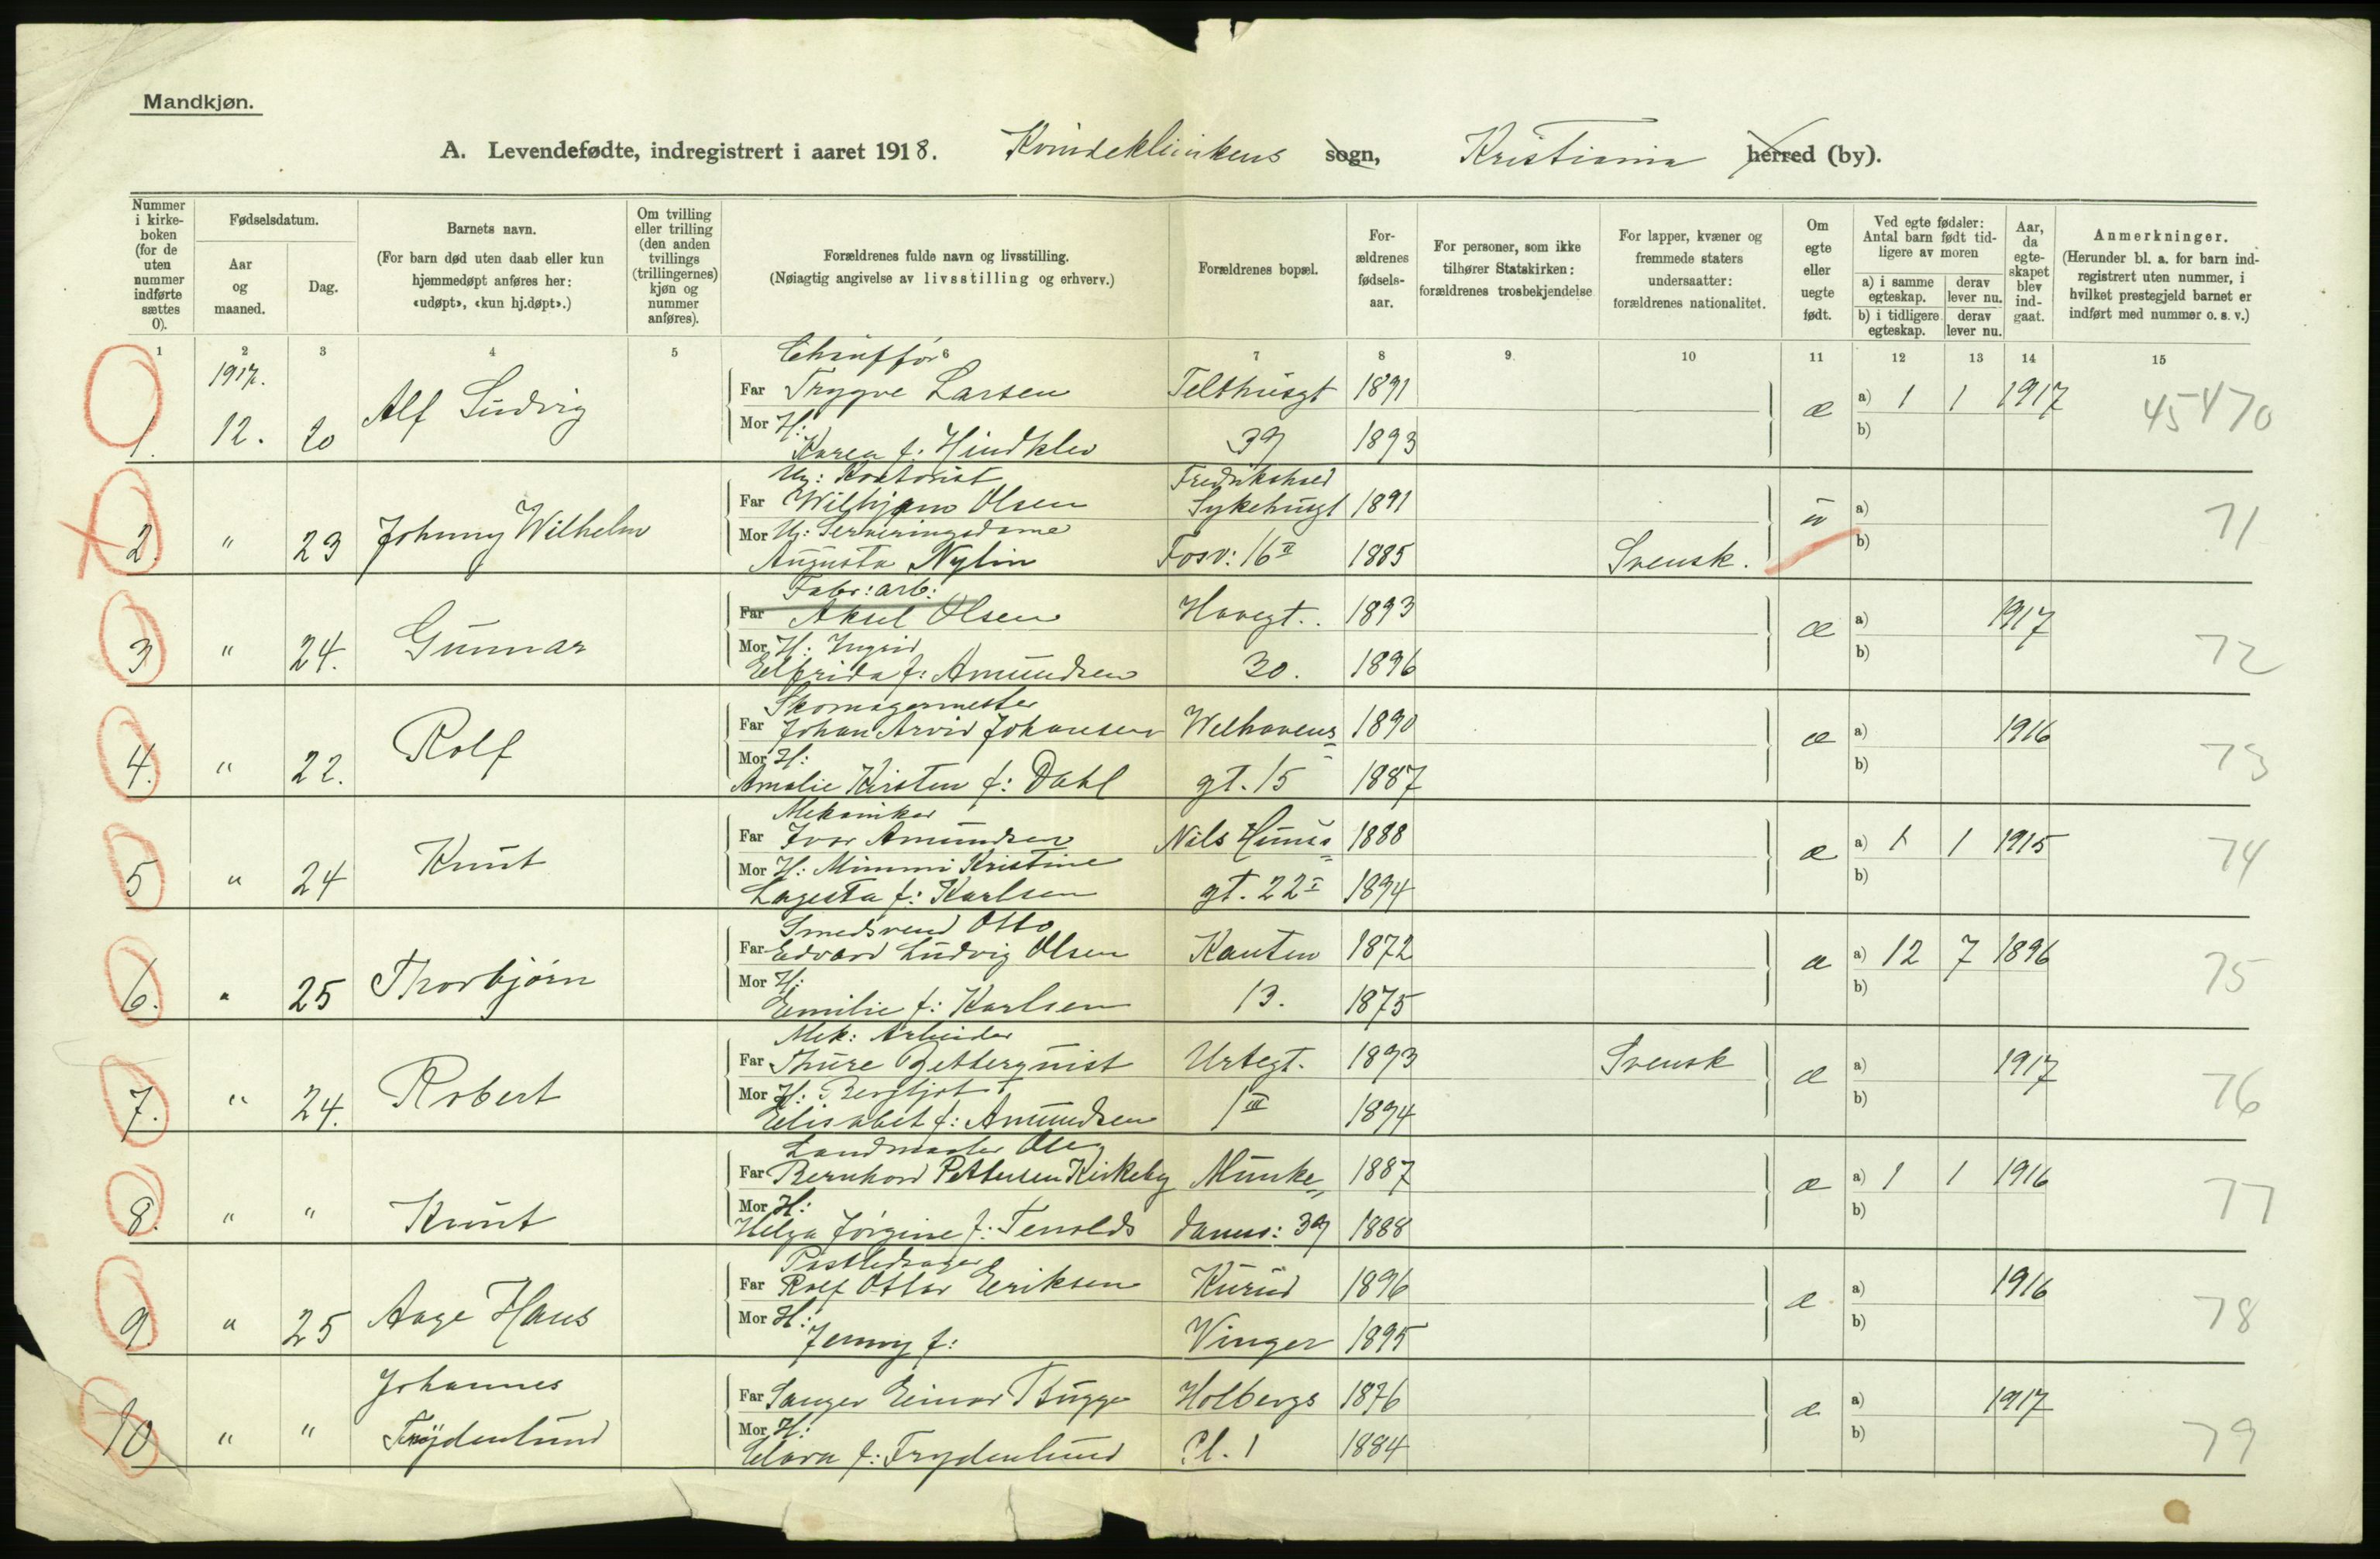 Mandkjøn.
A. Levendefødte, indregistrert i aaret 1918. Kvindeklinikens sogn, Kristiania herred (by).
Nummer i kirkeboken (for de uten nummer indførte sættes 0).
Fødselsdatum.
Aar og maaned.
Dag.
Barnets navn.
(For barn død uten daab eller kun hjemmedøpt anføres her: «udøpt», «kun hj.døpt».)
Om tvilling eller trilling (den anden tvillings (trillingernes) kjøn og nummer anføres).
Forældrenes fulde navn og livsstilling.
(Nøiagtig angivelse av livsstilling og erhverv.)
Forældrenes bopæl.
Forældrenes fødselsaar.
For personer, som ikke tilhører Statskirken: forældrenes trosbekjendelse
For lapper, kvæner og fremmede staters undersaatter: forældrenes nationalitet.
Om egte eller uegte født.
Ved egte fødsler: Antal barn født tidligere av moren
a) i samme egteskap.
derav lever nu.
b) i tidligere egteskap.
derav lever nu.
Aar, da egteskapet blev indgaat.
Anmerkninger.
(Herunder bl. a. for barn indregistrert uten nummer, i hvilket prestegjeld barnet er indført med nummer o. s. v.)
1 2 3 4 5 6 7 8 9. 10 11 12 13 14 15
1917.
Chauffør
Far Trygve Larsen Telthusgt 1891 a) 1 1 1917
1. 12. 20 Alf Ludvig æ 45470
Mor H: Karen f: Hindklev 39 1893 b)
Ug: Kontorist Fredrikshald
Far Wilhjem Olsen Sykehusgt 1891 a)
2 " 23 Johnny Wilhelm u 71
Mor Ug: Serveringsdame
Augusta Nylin Fosv: 16 II 1885 Svensk. b)
Fabr: arb:
Far Aksel Olsen Havegt. 1893 a) 1917
3 " 24. Gunnar æ 72
Mor H: Ingrid
Elfrida f: Amundsen 30. 1896 b)
Skomagermester
Far Johan Arvid Johansen Welhavens 1890 a) 1916
4. " 22. Rolf æ 73
Mor H:
Amalie Kirsten f: Dahl gt. 15 1887 b)
Mekaniker
Far Ivar Amundsen Nils Huus 1888 a) 1 1 1915
5 " 24 Knut æ 74
Mor H: Mimmi Kristine
f: Karlsen gt. 22 I 1894 b)
Smedsvend Otto
Far Edvard Ludvig Olsen Kanten 1872 a) 12 7 1896
6. " 25 Thorbjørn æ 75
Mor H:
Emilie f: Karlsen 13. 1875 b)
Mek: Arbeider
Far Thure Zetterquist Urtegt. 1893 Svensk a) 1917
7. " 24. Robert æ 76
Mor H: Bergljot
Elisabet f: Amundsen 1 III 1894 b)
Landmaaler Ole
Far Bernhard Pettersen Kirkeby Munke 1887 a) 1 1 1916
8. " " Knut æ 77
Mor H:
Helga Jørgine f: Tenolds damns: 39 1888 b)
Postbedrager
Far Rolf Ottar Eriksen Kurud 1896 a) 1916
9 " 25 Aage Hans æ 78
Mor H:
Jenny f: Vinger 1895 b)
Johannes
Far Sanger Einar Bugge Holbergs 1876 a) 1917
10 " " Frydenlund æ 79
Mor H:
Clara f: Frydenlund Pl. 1 1884 b)